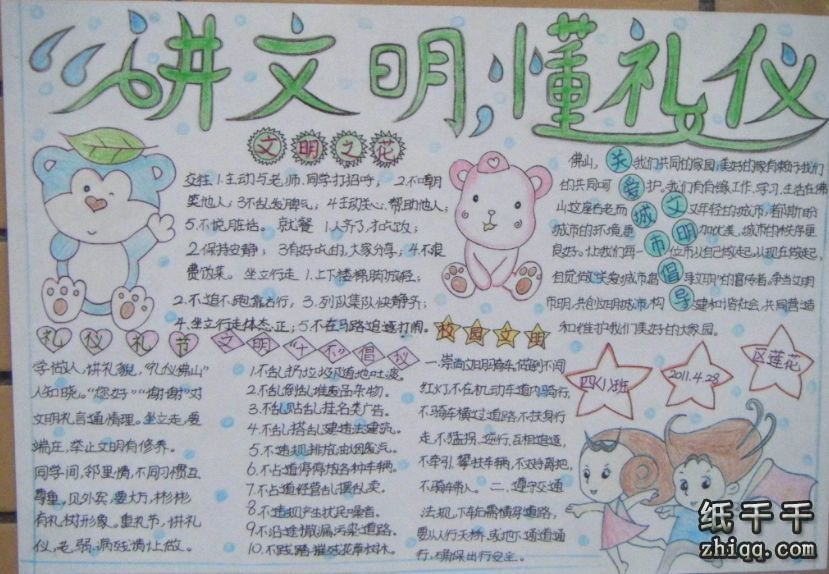 “讲文明,懂礼仪
文明之花
交往 1.主动与老师、同学打招呼; 2.不嘲
笑他人; 3.不乱发脾气; 4.主动关心、帮助他人;
5.不说脏话。 就餐 1.人齐了,才吃饭;
2.保持安静; 3.有好吃的,大家分享; 4.不浪
费饭菜。 坐立行走 1.上下楼梯脚放轻;
2.不追不跑靠右行; 3.列队集队快静齐;
4.坐立行走体态正; 5.不在马路追逐打闹。
佛山,关我们共同的家园,美好的家有赖于我们
的共同呵爱护。我们有自缘工作、学习、生活在佛
山这座古老而城文又年轻的城市,都渴盼
城市的环境更市明加优美,城市的秩序更
良好。让我们每一位市从自己做起,从现在做起,
自觉做关爱城市倡导文明的倡传者,争当文明
市民,共创文明城市,构导建和谐社会,共同营造
和维护我们美好的大家园。
礼仪礼节
学做人,讲礼貌,“礼仪佛山”
人知晓。“您好”“谢谢”对
文明礼言通情理。坐立走,要
端庄,举止文明有修养。
同学间,邻里情,不同习惯互
尊重。见外宾,要大方,彬彬
有礼树形象。重礼节,讲礼
仪,老、弱、病残请让做。
文明“十不”倡议
1.不乱扔垃圾随地吐痰。
2.不乱倒乱堆废品杂物。
3.不乱贴乱挂各类广告。
4.不乱搭乱建违法建筑。
5.不违规排放油烟废气。
6.不占道停放各种车辆。
7.不占道经营乱摆乱卖。
8.不违规产生扰民噪音。
9.不沿途撒漏污染道路。
10.不践踏摧残花草树木。
校园文明
一.崇尚文明骑车,做到不闯
红灯不在机动车道内骑行,
不骑车横过道路,不扶身行
走,不猛拐、逆行、互相追逐,
不牵引、攀扶车辆,不双手离把,
不骑车带人。 二、遵守交通
法规,下车后需横穿道路,
要从行天桥,或地下通道通
行,确保出行安全。
四(1)班
2011.4.28
区莲花
纸千千
zhiqq.com